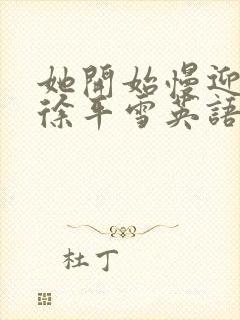 她開始慢迎
徐平雪英語
杜丁